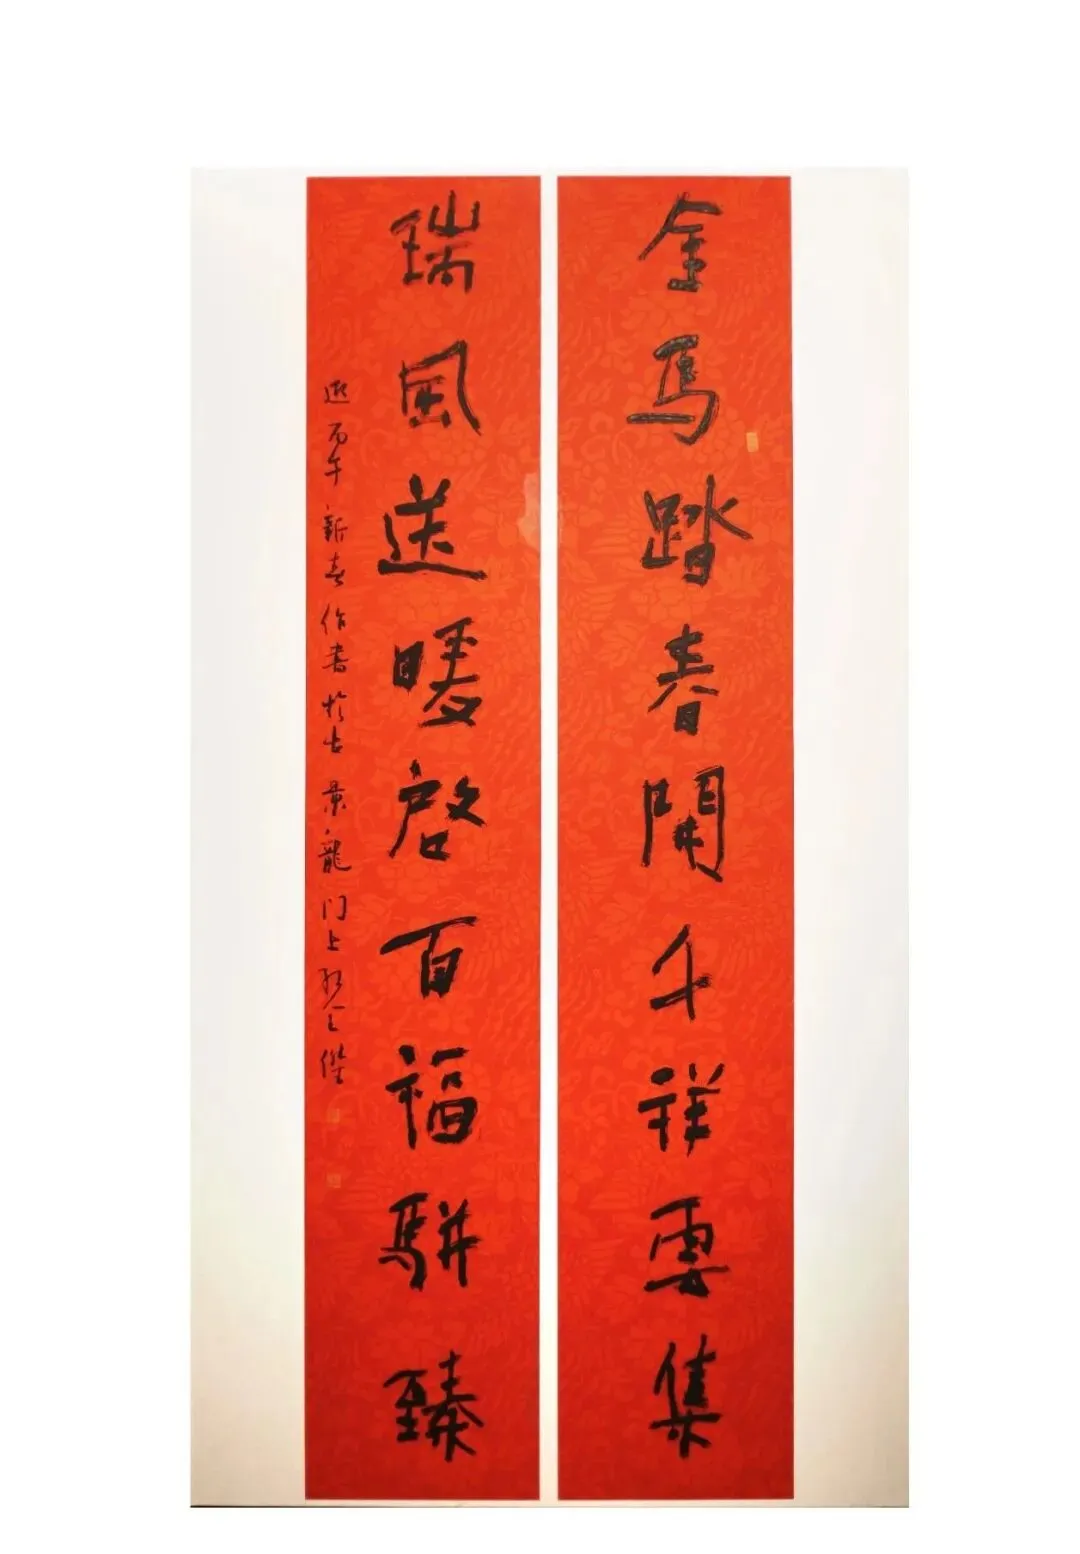 金馬踏春開千祥雲集
瑞風送暖啓百福駢臻
迎丙午新春作書於古景龍門上